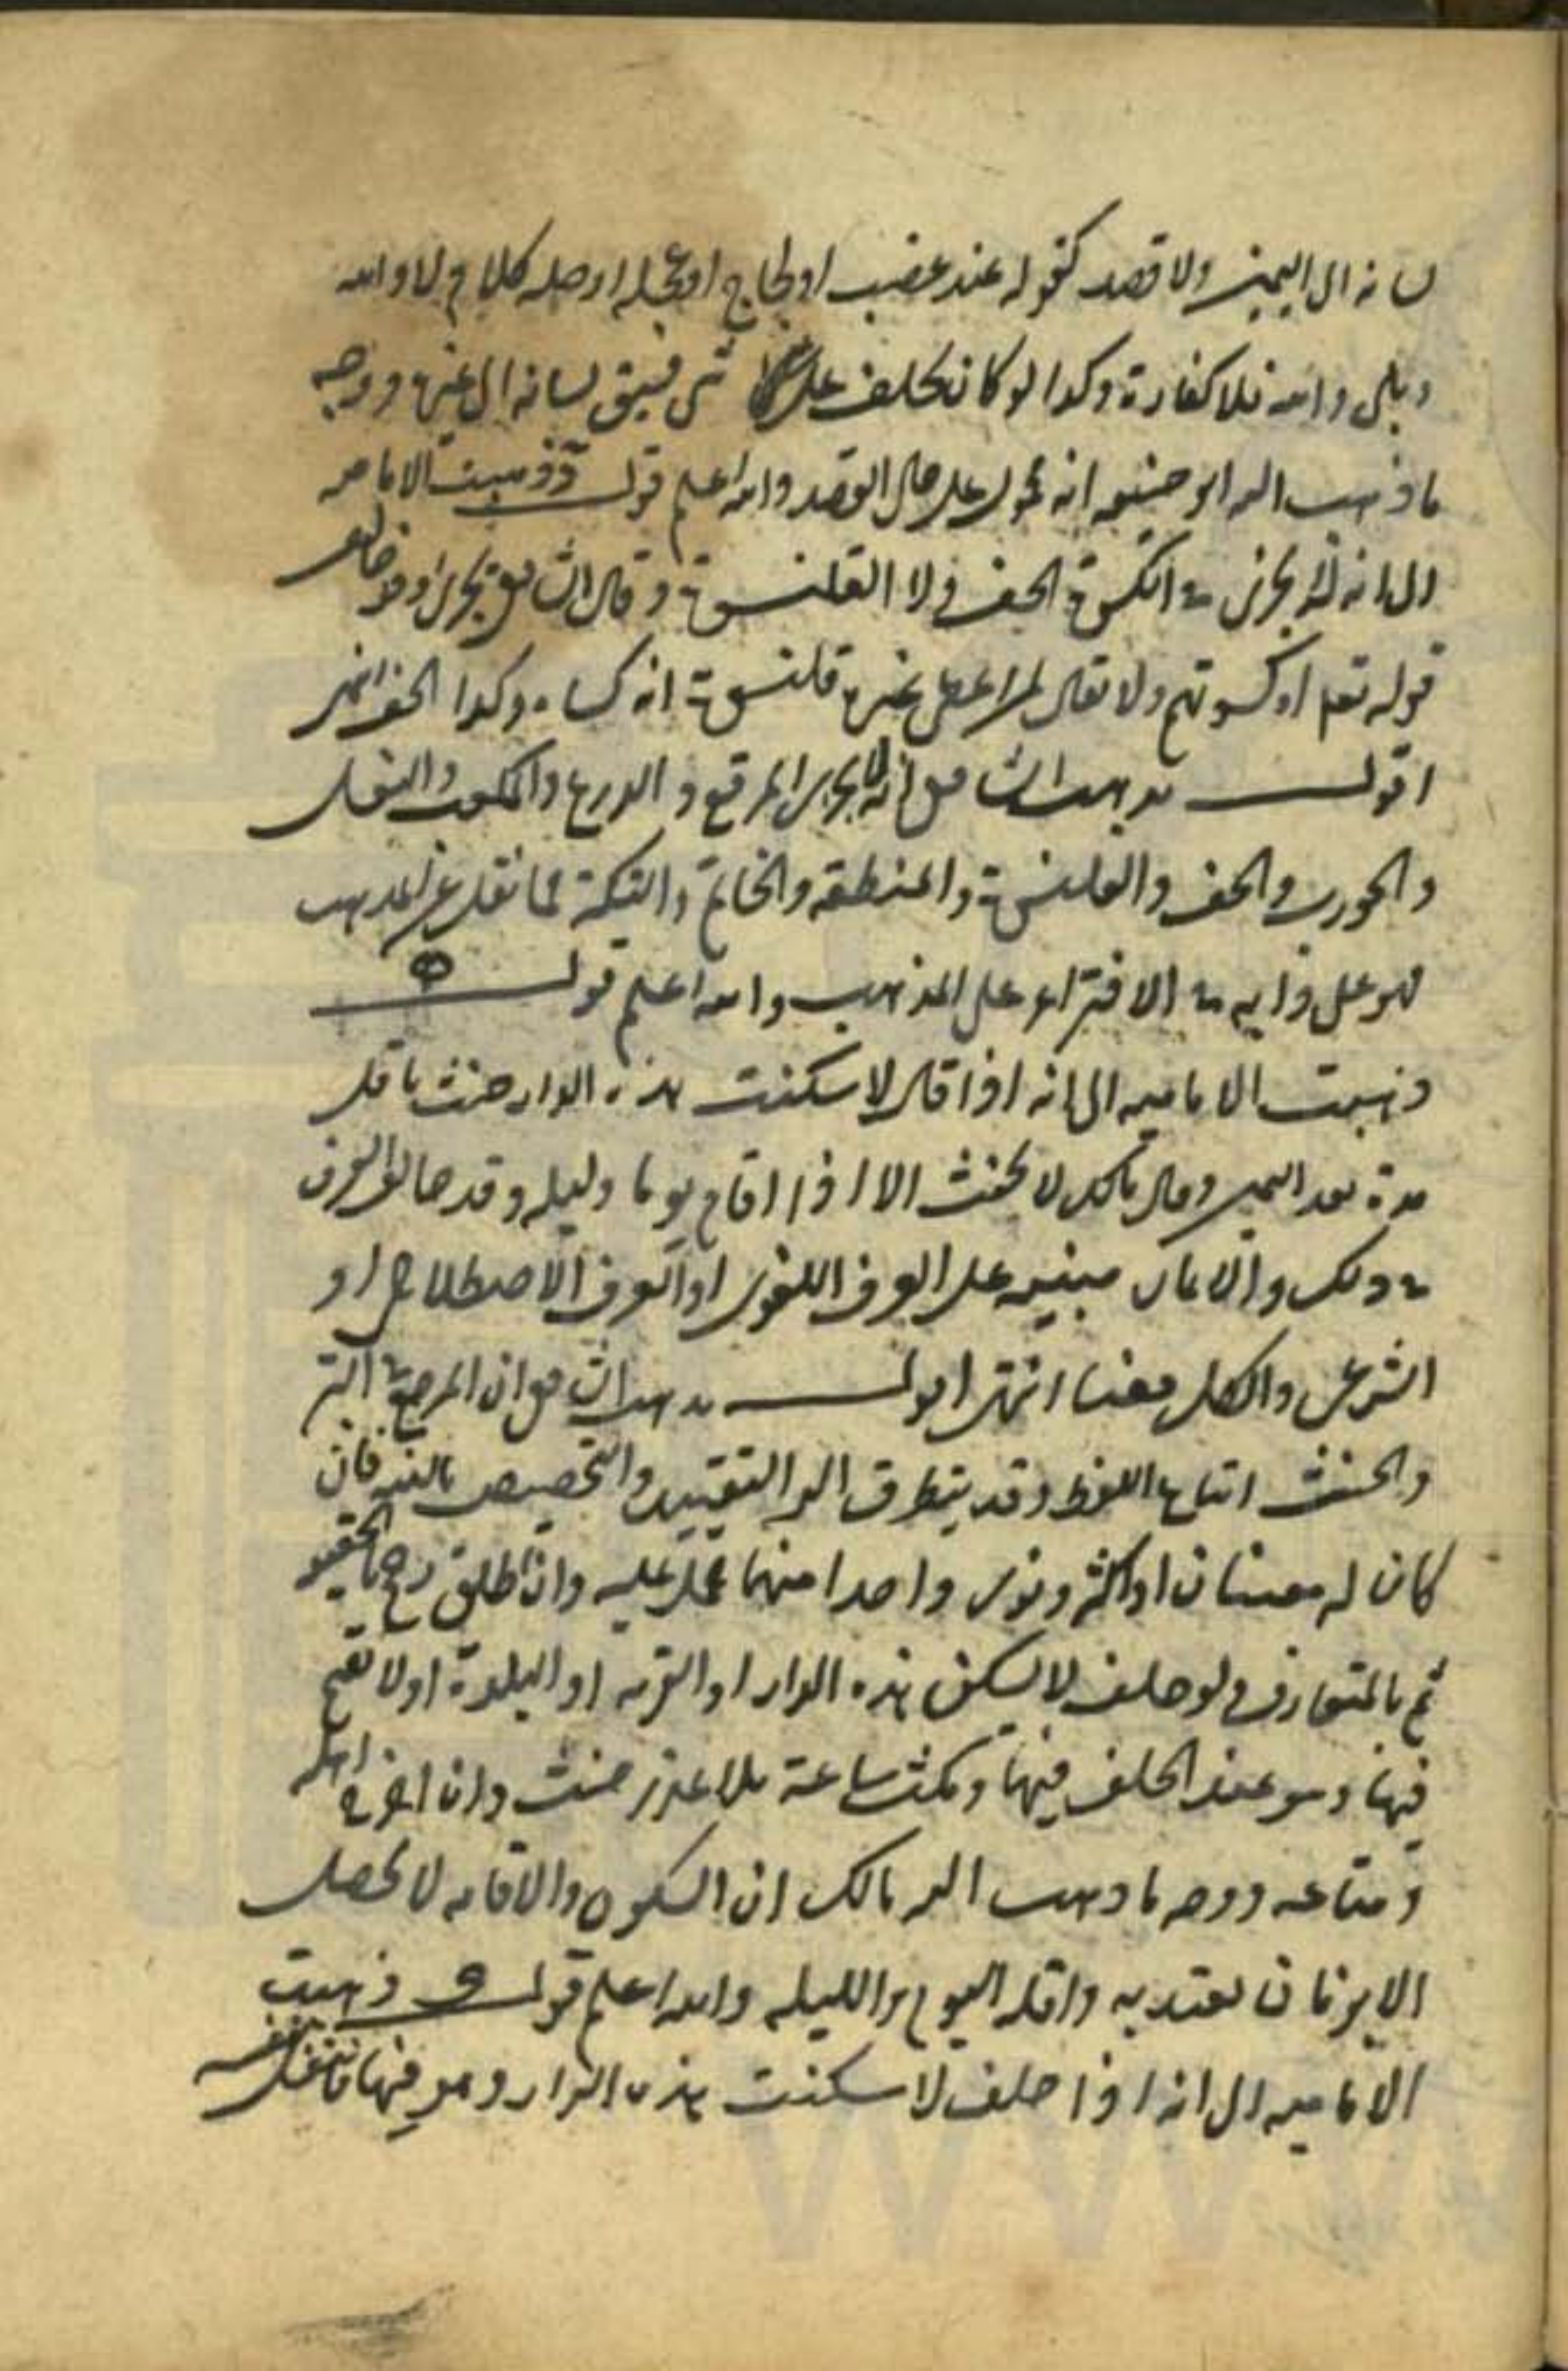 لسانه الى اليمين ولا قصد كقوله عند غضب او لجاج او عجله او صلة كلام لا والله
وبلى والله فلا كفارة وكذا لو كان يحلف على شى فسبق لسانه الى غيره ووجه
ما ذهب اليه ابو حنيفه انه محمول على حال القصد والله اعلم قوله د ذهبت الاماميه
الى انه لا يجزى من الكسوة الخف ولا القلنسوة وقال الشافعى يجزى وقد خالف
قوله تعالى او كسوتهم ولا يقال لمن اعطى غيره قلنسوة انه كساه وكذا الخف انتهى
اقول مذهب الشافعى انه لا يجزى المرقع و الدرع والمكعب والنعل
والجورب والخف والقلنسوة والمنطقه والخاتم والتكة فما نقل عن المذهب
فهو على دابه من الافتراء على المذهب والله اعلم قوله ه
ذهبت الاماميه الى انه اذا قال لا سكنت هذه الدار حنث باقل
مدة بعد اليمين وقال مالك لا يحنث الا اذا اقام يوما وليله وقد خالف العرف
فى ذلك والايمان مبنيه على العرف اللغوى او العرف الاصطلاحى او
الشرعى والكل معنا انتهى اقول مذهب الشافعى ان المرجع فى البر
والحنث اتباع اللفظ وقد يتطرق اليه التقييد والتخصيص بالنيه فان
كان له معنيان او اكثر ونوى واحدا منهما حمل عليه وان اطلق رجح الحقيقه
ثم بالمتعارف ولو حلف لا يسكن هذه الدار او القريه او البلدة او لا يقيم
فيها وهو عند الحلف فيها ومكث ساعة بلا عذر حنث وان اخرج اهله
ومتاعه ووجه ما ذهب اليه مالك ان السكون والاقامه لا يحصل
الا بزمان يعتد به واقله اليوم والليله والله اعلم قوله و ذهبت
الاماميه الى انه اذا حلف لا سكنت هذه الدار وهو فيها فانتقل بنفسه